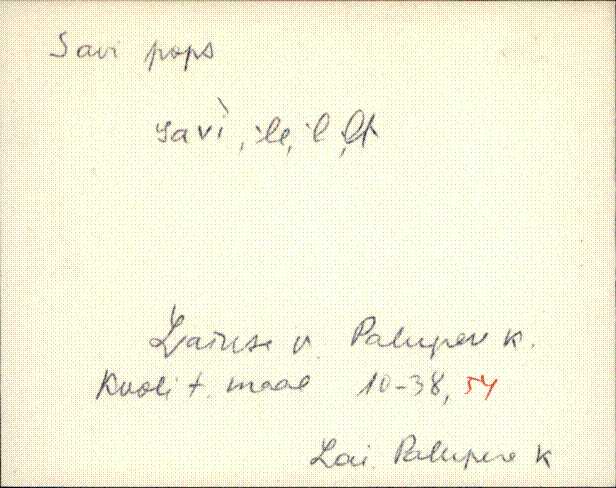 Savi pops
savì, ile, il, ilt
Laiuse v. Palupere k.
Kooli t. maal 10-38, 54
Lai. Palupere k